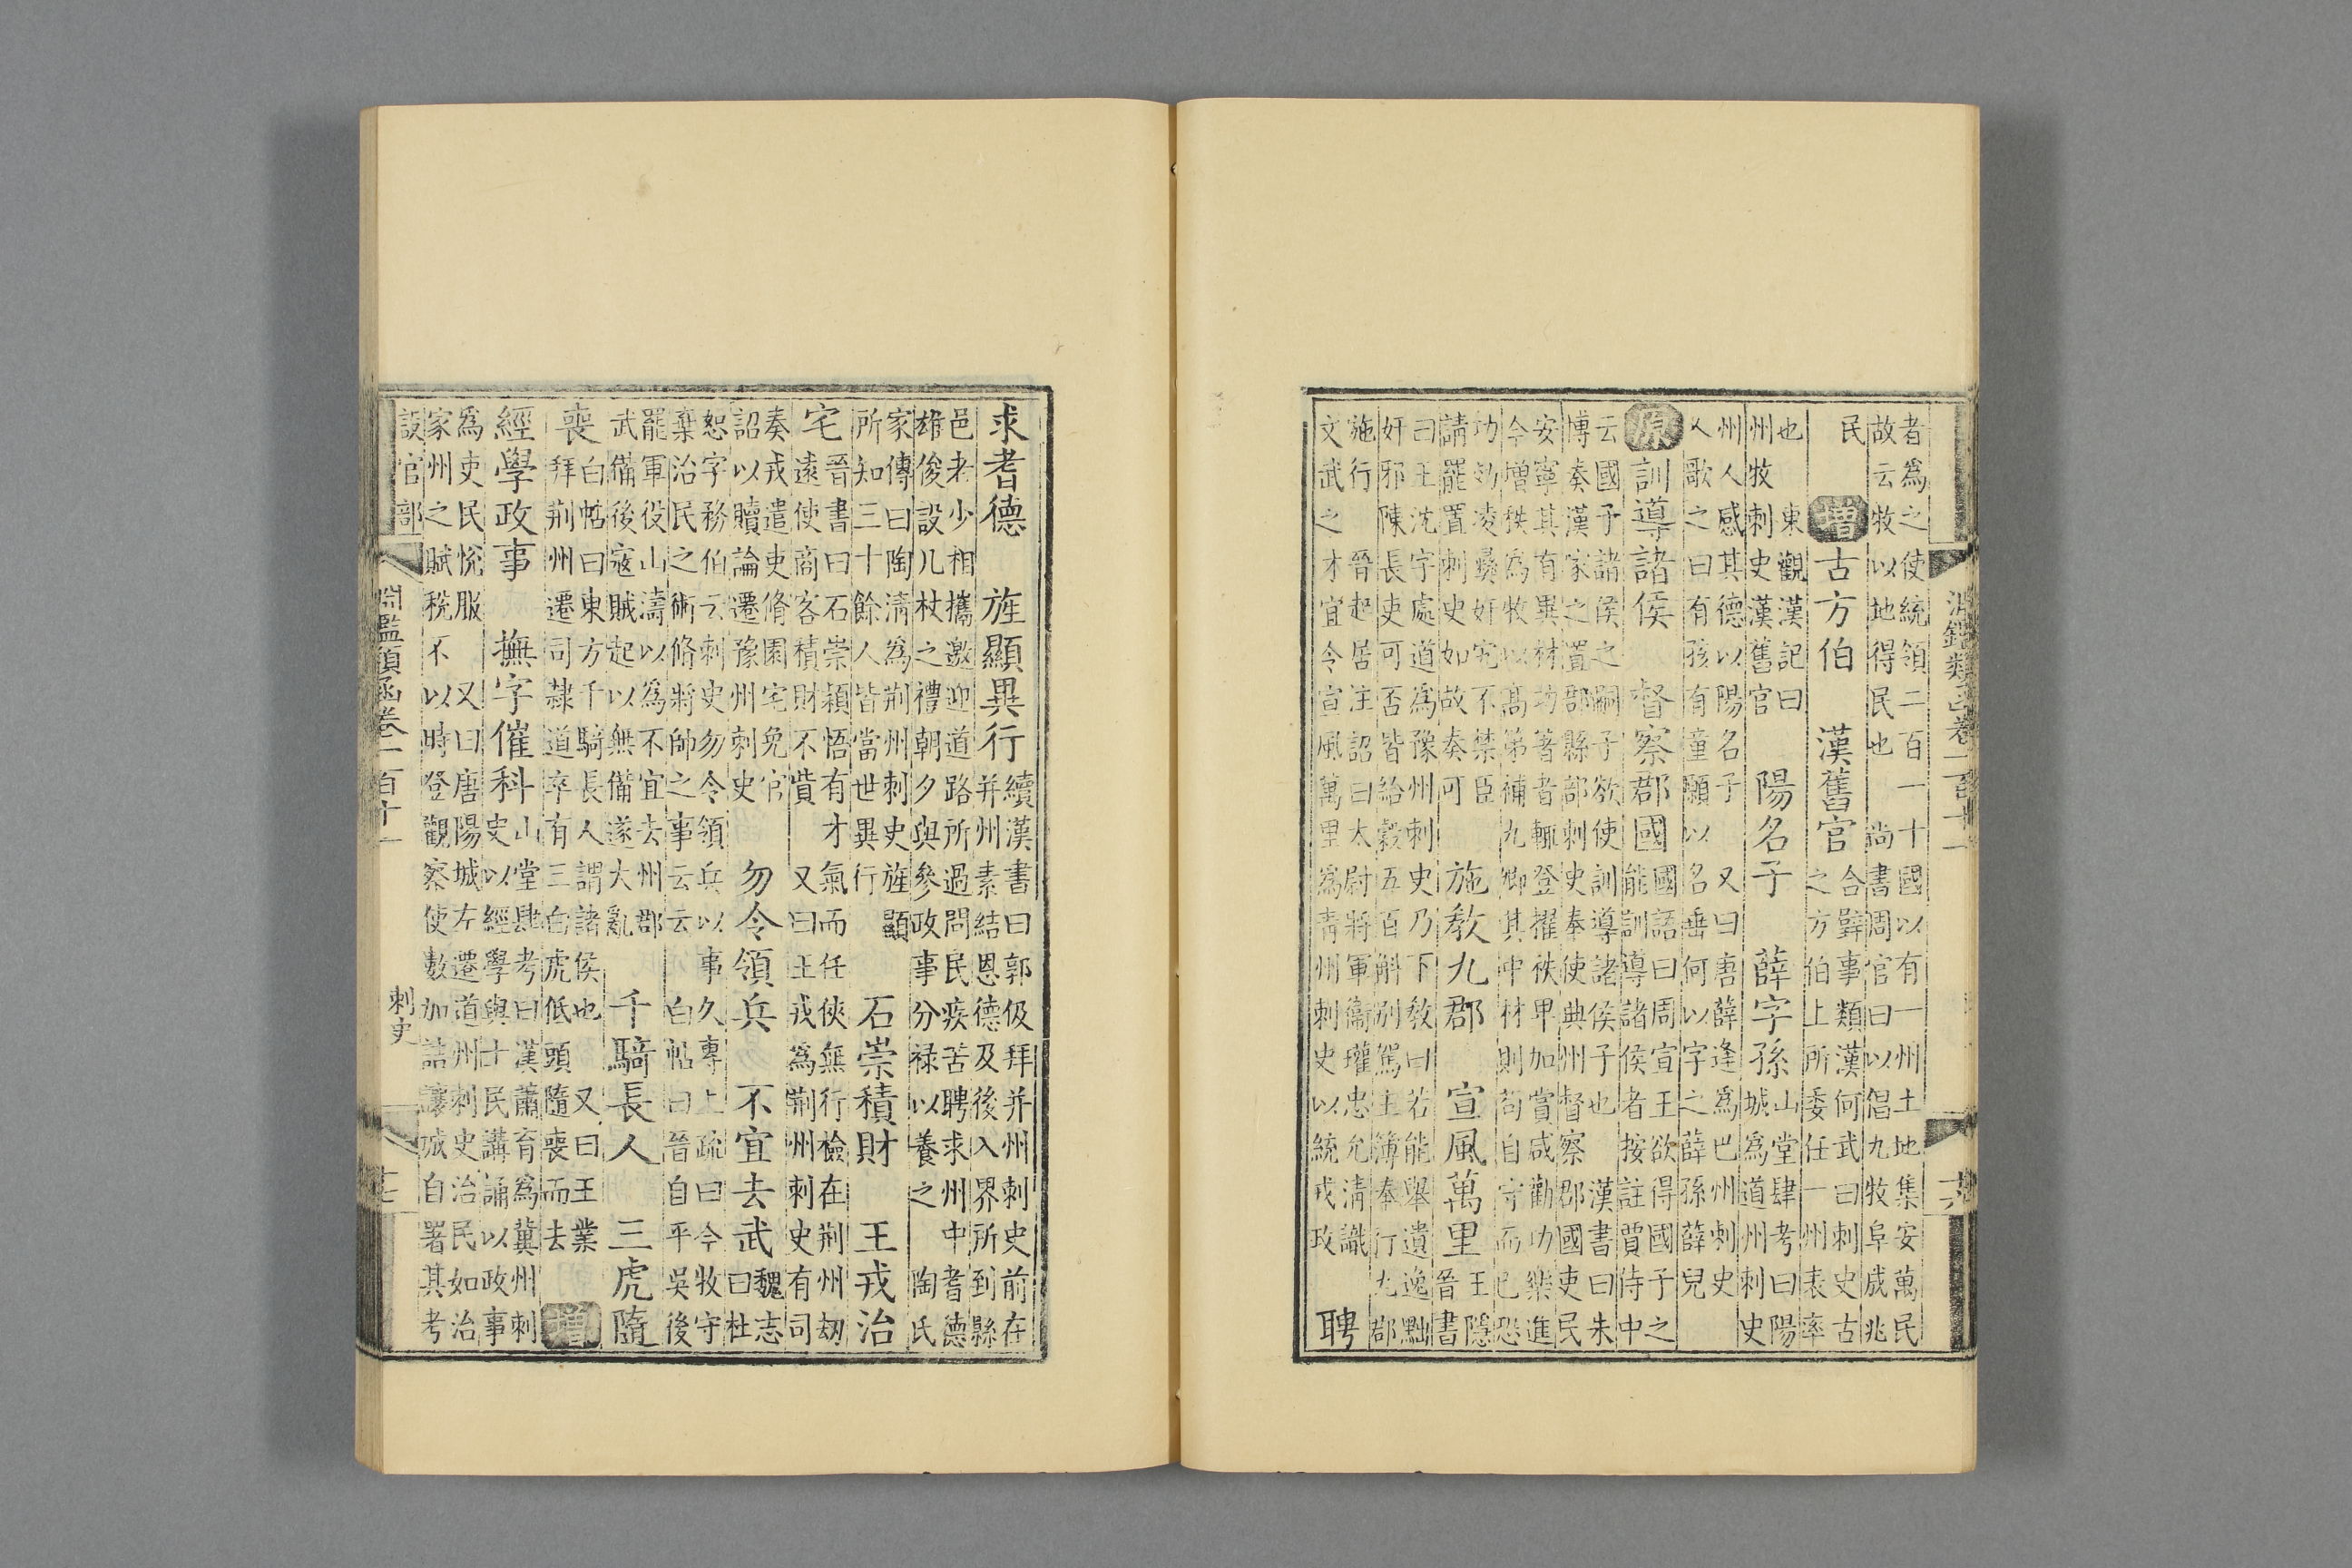 淵鑑類函卷一百十一 十六
者爲之使統領二百一十國以有一州土地集安萬民
故云牧以地得民也 尚書周官曰以倡九牧阜成兆
民 增 古方伯 漢舊官
合璧事類漢何武曰刺史古
之方伯上所委任一州表率
也 東觀漢記曰
州牧刺史漢舊官
陽名子 薛字孫
山堂肆考曰陽
城爲道州刺史
州人感其德以陽名子 又曰唐薛逢爲巴州刺史
人歌之曰有孩有童願以名垂何以字之薛孫薛兒
原 訓導諸侯 督察郡國
國語曰周宣王欲得國子之
能訓導諸侯者按註賈侍中
云國子諸侯之嗣子欲使訓導諸侯子也 漢書曰朱
博奏漢家之置郡縣部刺史奉使典州督察郡國吏民
安寧其有異材功著者輒登擢秩卑加賞咸勸功樂進
今增秩爲牧以高第補九卿其中材則苟自守而已恐
功効凌彝奸宄不禁臣
請罷置刺史如故奏可
施教九郡 宣風萬里
王隱
晉書
曰王沈字處道爲豫州刺史乃下教曰若能舉遺逸黜
奸邪陳長吏可否皆給穀五百斛別駕主簿奉行九郡
施行 晉起居注詔曰太尉將軍衛瓘忠允清識
文武之才宜令宣風萬里爲青州刺史以統戎政
聘
求耆德 旌顯異行
續漢書曰郭伋拜并州刺史前在
并州素結恩德及後入界所到縣
邑老少相攜邀迎道路所過問民疾苦聘求州中耆德
雄俊設几杖之禮朝夕與參政事分祿以養之 陶氏
家傳曰陶淸爲荆州刺史旌顯
所知三十餘人皆當世異行
石崇積財 王戎治
宅
晉書曰石崇穎悟有才氣而任俠無行檢在荆州劫
遠使商客積財不貲 又曰王戎爲荆州刺史有司
奏戎遣吏脩園宅免官
詔以贖論遷豫州刺史
勿令領兵 不宜去武
魏志
曰杜
恕字務伯云刺史勿令領兵以事久專上疏曰今牧守
棄治民之術脩將帥之事云云 白帖曰晉自平吳後
罷軍役山濤以爲不宜去州郡
武備後寇賊起以無備遂大亂
千騎長人 三虎隨
喪
白帖曰東方千騎長人謂諸侯也 又曰王業
拜荆州遷司隸道卒有三白虎低頭隨喪而去
增
經學政事 撫字催科
山堂肆考曰漢蕭育爲冀州刺
史以經學與士民講誦以政事
爲吏民悅服 又曰唐陽城左遷道州刺史治民如治
家州之賦稅不以時登觀察使數加誚讓城自署其考
設官部 淵鑑類函卷一百十一 刺史 十七